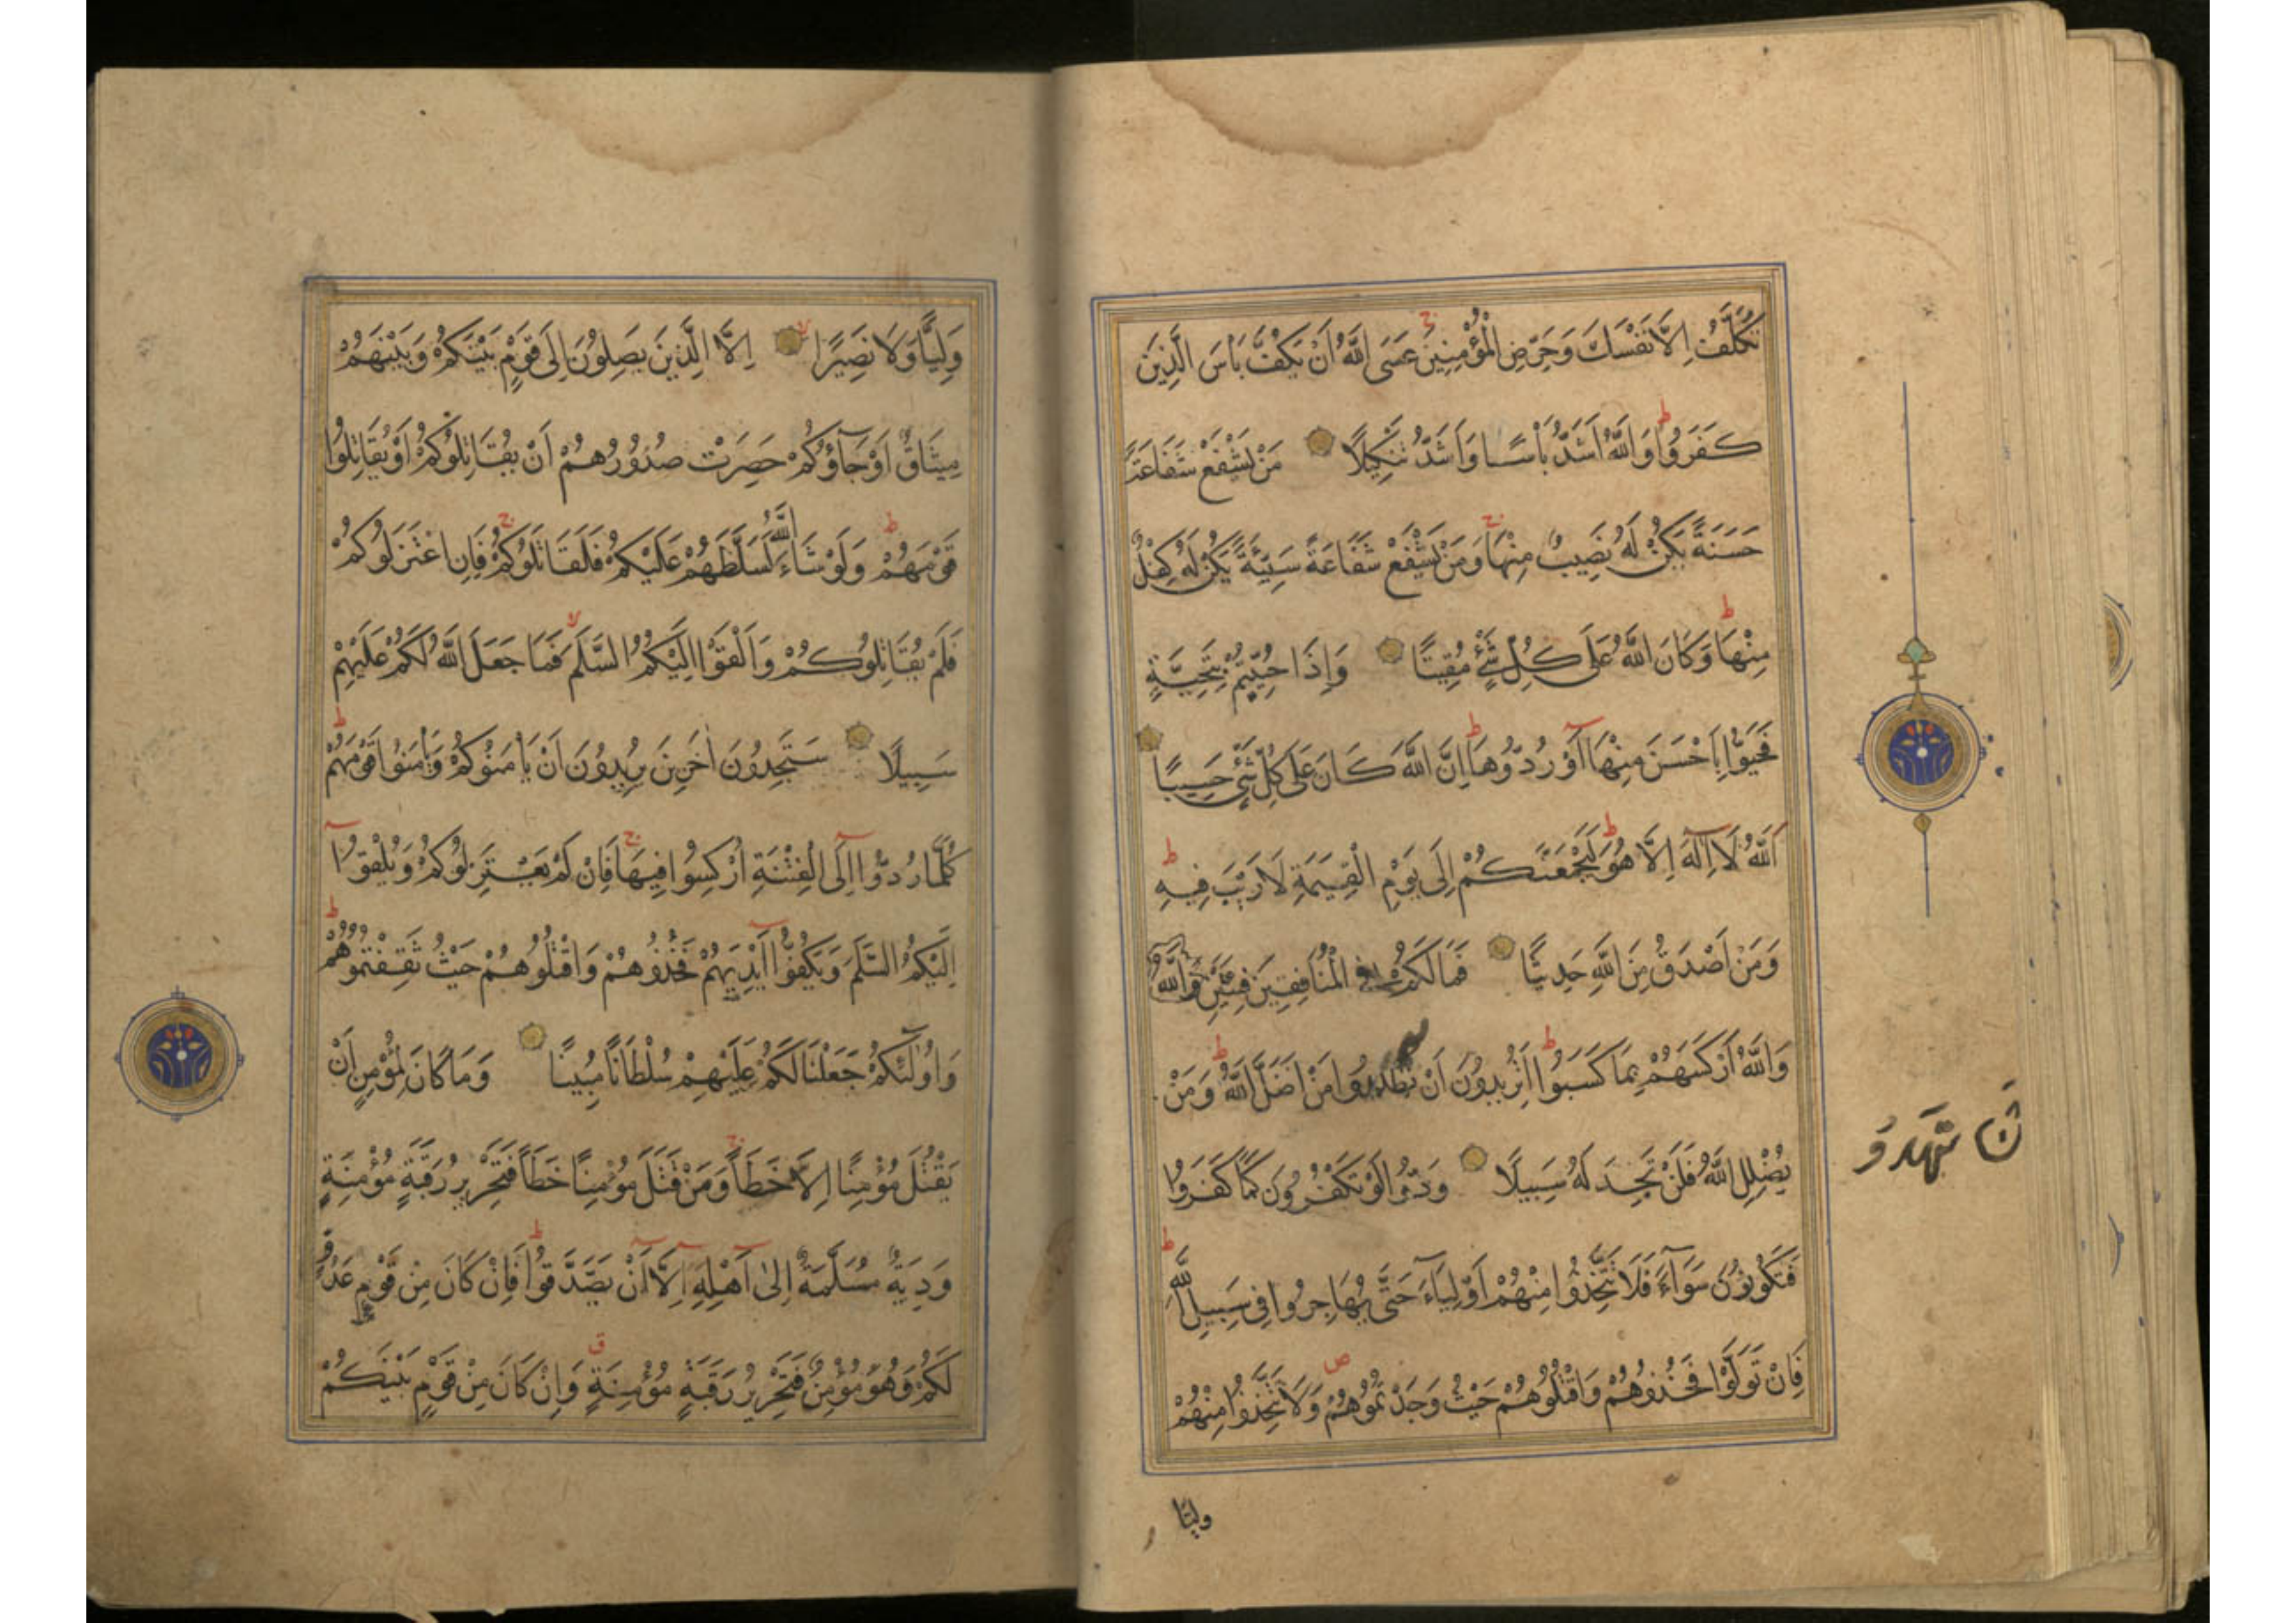 تُكَلَّفُ اِلَّا نَفْسَكَ وَحَرِّضِ الْمُؤْمِنِينَ عَسَى اللّٰهُ اَنْ يَكُفَّ بَاْسَ الَّذِينَ
كَفَرُوا وَاللّٰهُ اَشَدُّ بَاْسًا وَاَشَدُّ تَنْكِيلًا مَنْ يَشْفَعْ شَفَاعَةً
حَسَنَةً يَكُنْ لَهُ نَصِيبٌ مِنْهَا وَمَنْ يَشْفَعْ شَفَاعَةً سَيِّئَةً يَكُنْ لَهُ كِفْلٌ
مِنْهَا وَكَانَ اللّٰهُ عَلَى كُلِّ شَيْءٍ مُقِيتًا وَاِذَا حُيِّيتُمْ بِتَحِيَّةٍ
فَحَيُّوا بِاَحْسَنَ مِنْهَا اَوْ رُدُّوهَا اِنَّ اللّٰهَ كَانَ عَلَى كُلِّ شَيْءٍ حَسِيبًا
اَللّٰهُ لَا اِلٰهَ اِلَّا هُوَ لَيَجْمَعَنَّكُمْ اِلَى يَوْمِ الْقِيٰمَةِ لَا رَيْبَ فِيهِ
وَمَنْ اَصْدَقُ مِنَ اللّٰهِ حَدِيثًا فَمَا لَكُمْ فِي الْمُنَافِقِينَ فِئَتَيْنِ وَاللّٰهُ
وَاللّٰهُ اَرْكَسَهُمْ بِمَا كَسَبُوا اَتُرِيدُونَ اَنْ تَهْدُوا مَنْ اَضَلَّ اللّٰهُ وَمَنْ
يُضْلِلِ اللّٰهُ فَلَنْ تَجِدَ لَهُ سَبِيلًا وَدُّوا لَوْ تَكْفُرُونَ كَمَا كَفَرُوا
فَتَكُونُونَ سَوَاۤءً فَلَا تَتَّخِذُوا مِنْهُمْ اَوْلِيَاۤءَ حَتَّى يُهَاجِرُوا فِي سَبِيلِ اللّٰهِ
فَاِنْ تَوَلَّوْا فَخُذُوهُمْ وَاقْتُلُوهُمْ حَيْثُ وَجَدْتُمُوهُمْ وَلَا تَتَّخِذُوا مِنْهُمْ
وليّا
وَلِيًّا وَلَا نَصِيرًا اِلَّا الَّذِينَ يَصِلُونَ اِلَى قَوْمٍ بَيْنَكُمْ وَبَيْنَهُمْ
مِيثَاقٌ اَوْ جَاۤؤُكُمْ حَصِرَتْ صُدُورُهُمْ اَنْ يُقَاتِلُوكُمْ اَوْ يُقَاتِلُوا
قَوْمَهُمْ وَلَوْ شَاۤءَ اللّٰهُ لَسَلَّطَهُمْ عَلَيْكُمْ فَلَقَاتَلُوكُمْ فَاِنِ اعْتَزَلُوكُمْ
فَلَمْ يُقَاتِلُوكُمْ وَاَلْقَوْا اِلَيْكُمُ السَّلَمَ فَمَا جَعَلَ اللّٰهُ لَكُمْ عَلَيْهِمْ
سَبِيلًا سَتَجِدُونَ اٰخَرِينَ يُرِيدُونَ اَنْ يَاْمَنُوكُمْ وَيَاْمَنُوا قَوْمَهُمْ
كُلَّمَا رُدُّوا اِلَى الْفِتْنَةِ اُرْكِسُوا فِيهَا فَاِنْ لَمْ يَعْتَزِلُوكُمْ وَيُلْقُوا
اِلَيْكُمُ السَّلَمَ وَيَكُفُّوا اَيْدِيَهُمْ فَخُذُوهُمْ وَاقْتُلُوهُمْ حَيْثُ ثَقِفْتُمُوهُمْ
وَاُولٰئِكُمْ جَعَلْنَا لَكُمْ عَلَيْهِمْ سُلْطَانًا مُبِينًا وَمَا كَانَ لِمُؤْمِنٍ اَنْ
يَقْتُلَ مُؤْمِنًا اِلَّا خَطَأً وَمَنْ قَتَلَ مُؤْمِنًا خَطَأً فَتَحْرِيرُ رَقَبَةٍ مُؤْمِنَةٍ
وَدِيَةٌ مُسَلَّمَةٌ اِلٰى اَهْلِهِ اِلَّا اَنْ يَصَّدَّقُوا فَاِنْ كَانَ مِنْ قَوْمٍ عَدُوٍّ
لَكُمْ وَهُوَ مُؤْمِنٌ فَتَحْرِيرُ رَقَبَةٍ مُؤْمِنَةٍ وَاِنْ كَانَ مِنْ قَوْمٍ بَيْنَكُمْ